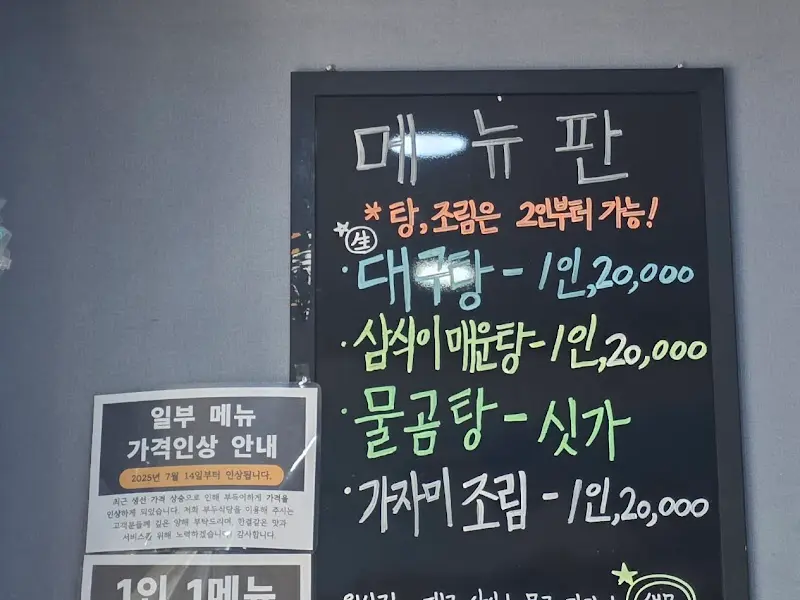 메뉴판
* 탕, 조림은 2인부터 가능!
生
· 대구탕 - 1인, 20,000
· 삼식이 매운탕 - 1인, 20,000
· 물곰탕 - 싯가
· 가자미 조림 - 1인, 20,000
일부 메뉴
가격인상 안내
2025년 7월 14일부터 인상됩니다.
최근 생선 가격 상승으로 인해 부득이하게 가격을
인상하게 되었습니다. 저희 부두식당을 이용해 주시는
고객분들께 깊은 양해 부탁드리며, 한결같은 맛과
서비스를 위해 노력하겠습니다. 감사합니다.
1인 1메뉴